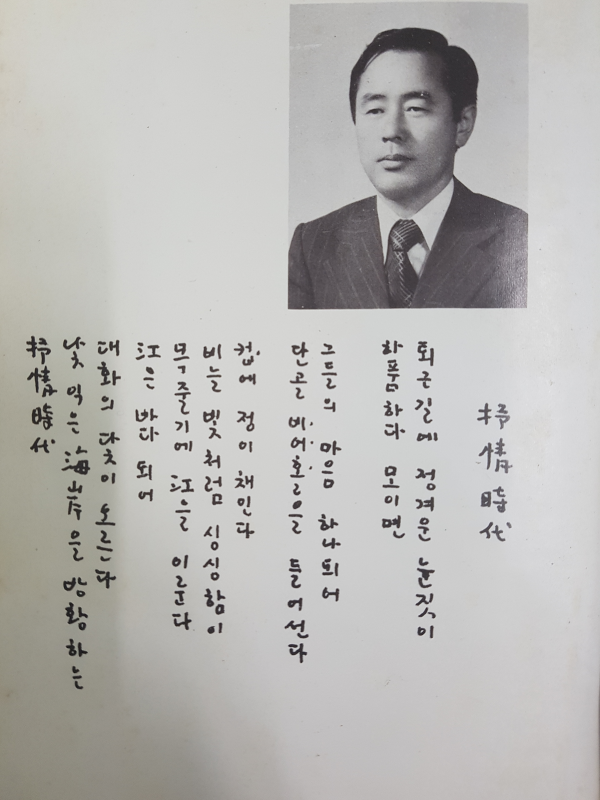 抒情時代
퇴근길에 정겨운 눈짓이
하품하다 모이면
그들의 마음 하나되어
단골 비어홀을 들어선다
컵에 정이 채인다
비늘 빛처럼 싱싱함이
목줄기에 江을 이룬다
江은 바다 되어
대화의 닻이 오른다
낯익은 海岸을 방황하는
抒情時代